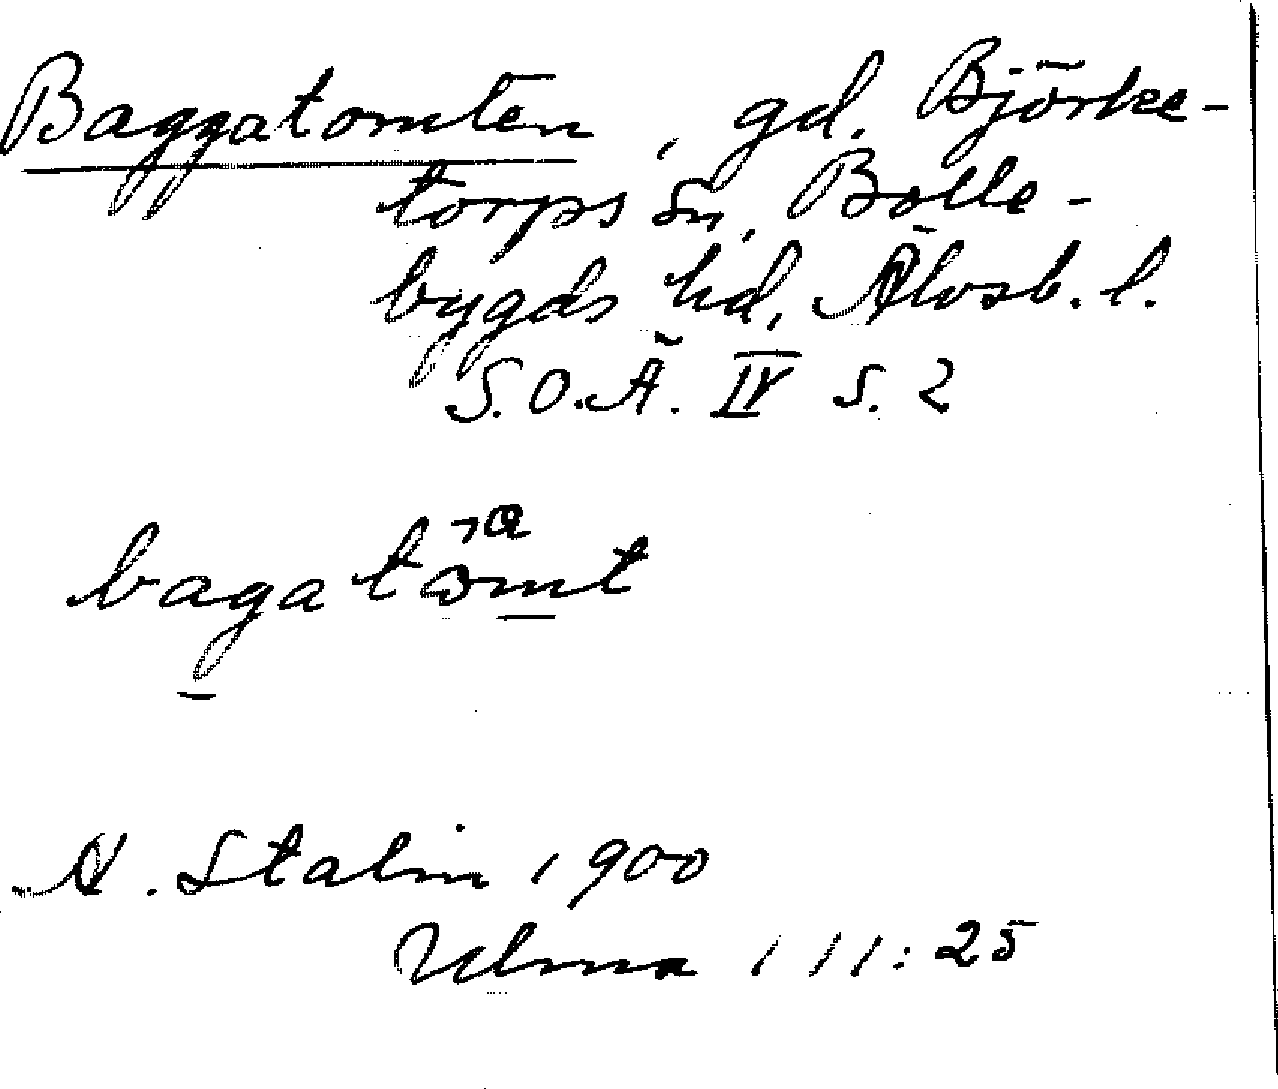 Baggatomten, gd. Björke-
torps sn, Bolle-
bygds hd, Älvsb. l.
S.O.Ä. IV s. 2
bagatomt
A. Stalin 1900
Ulma 111:25